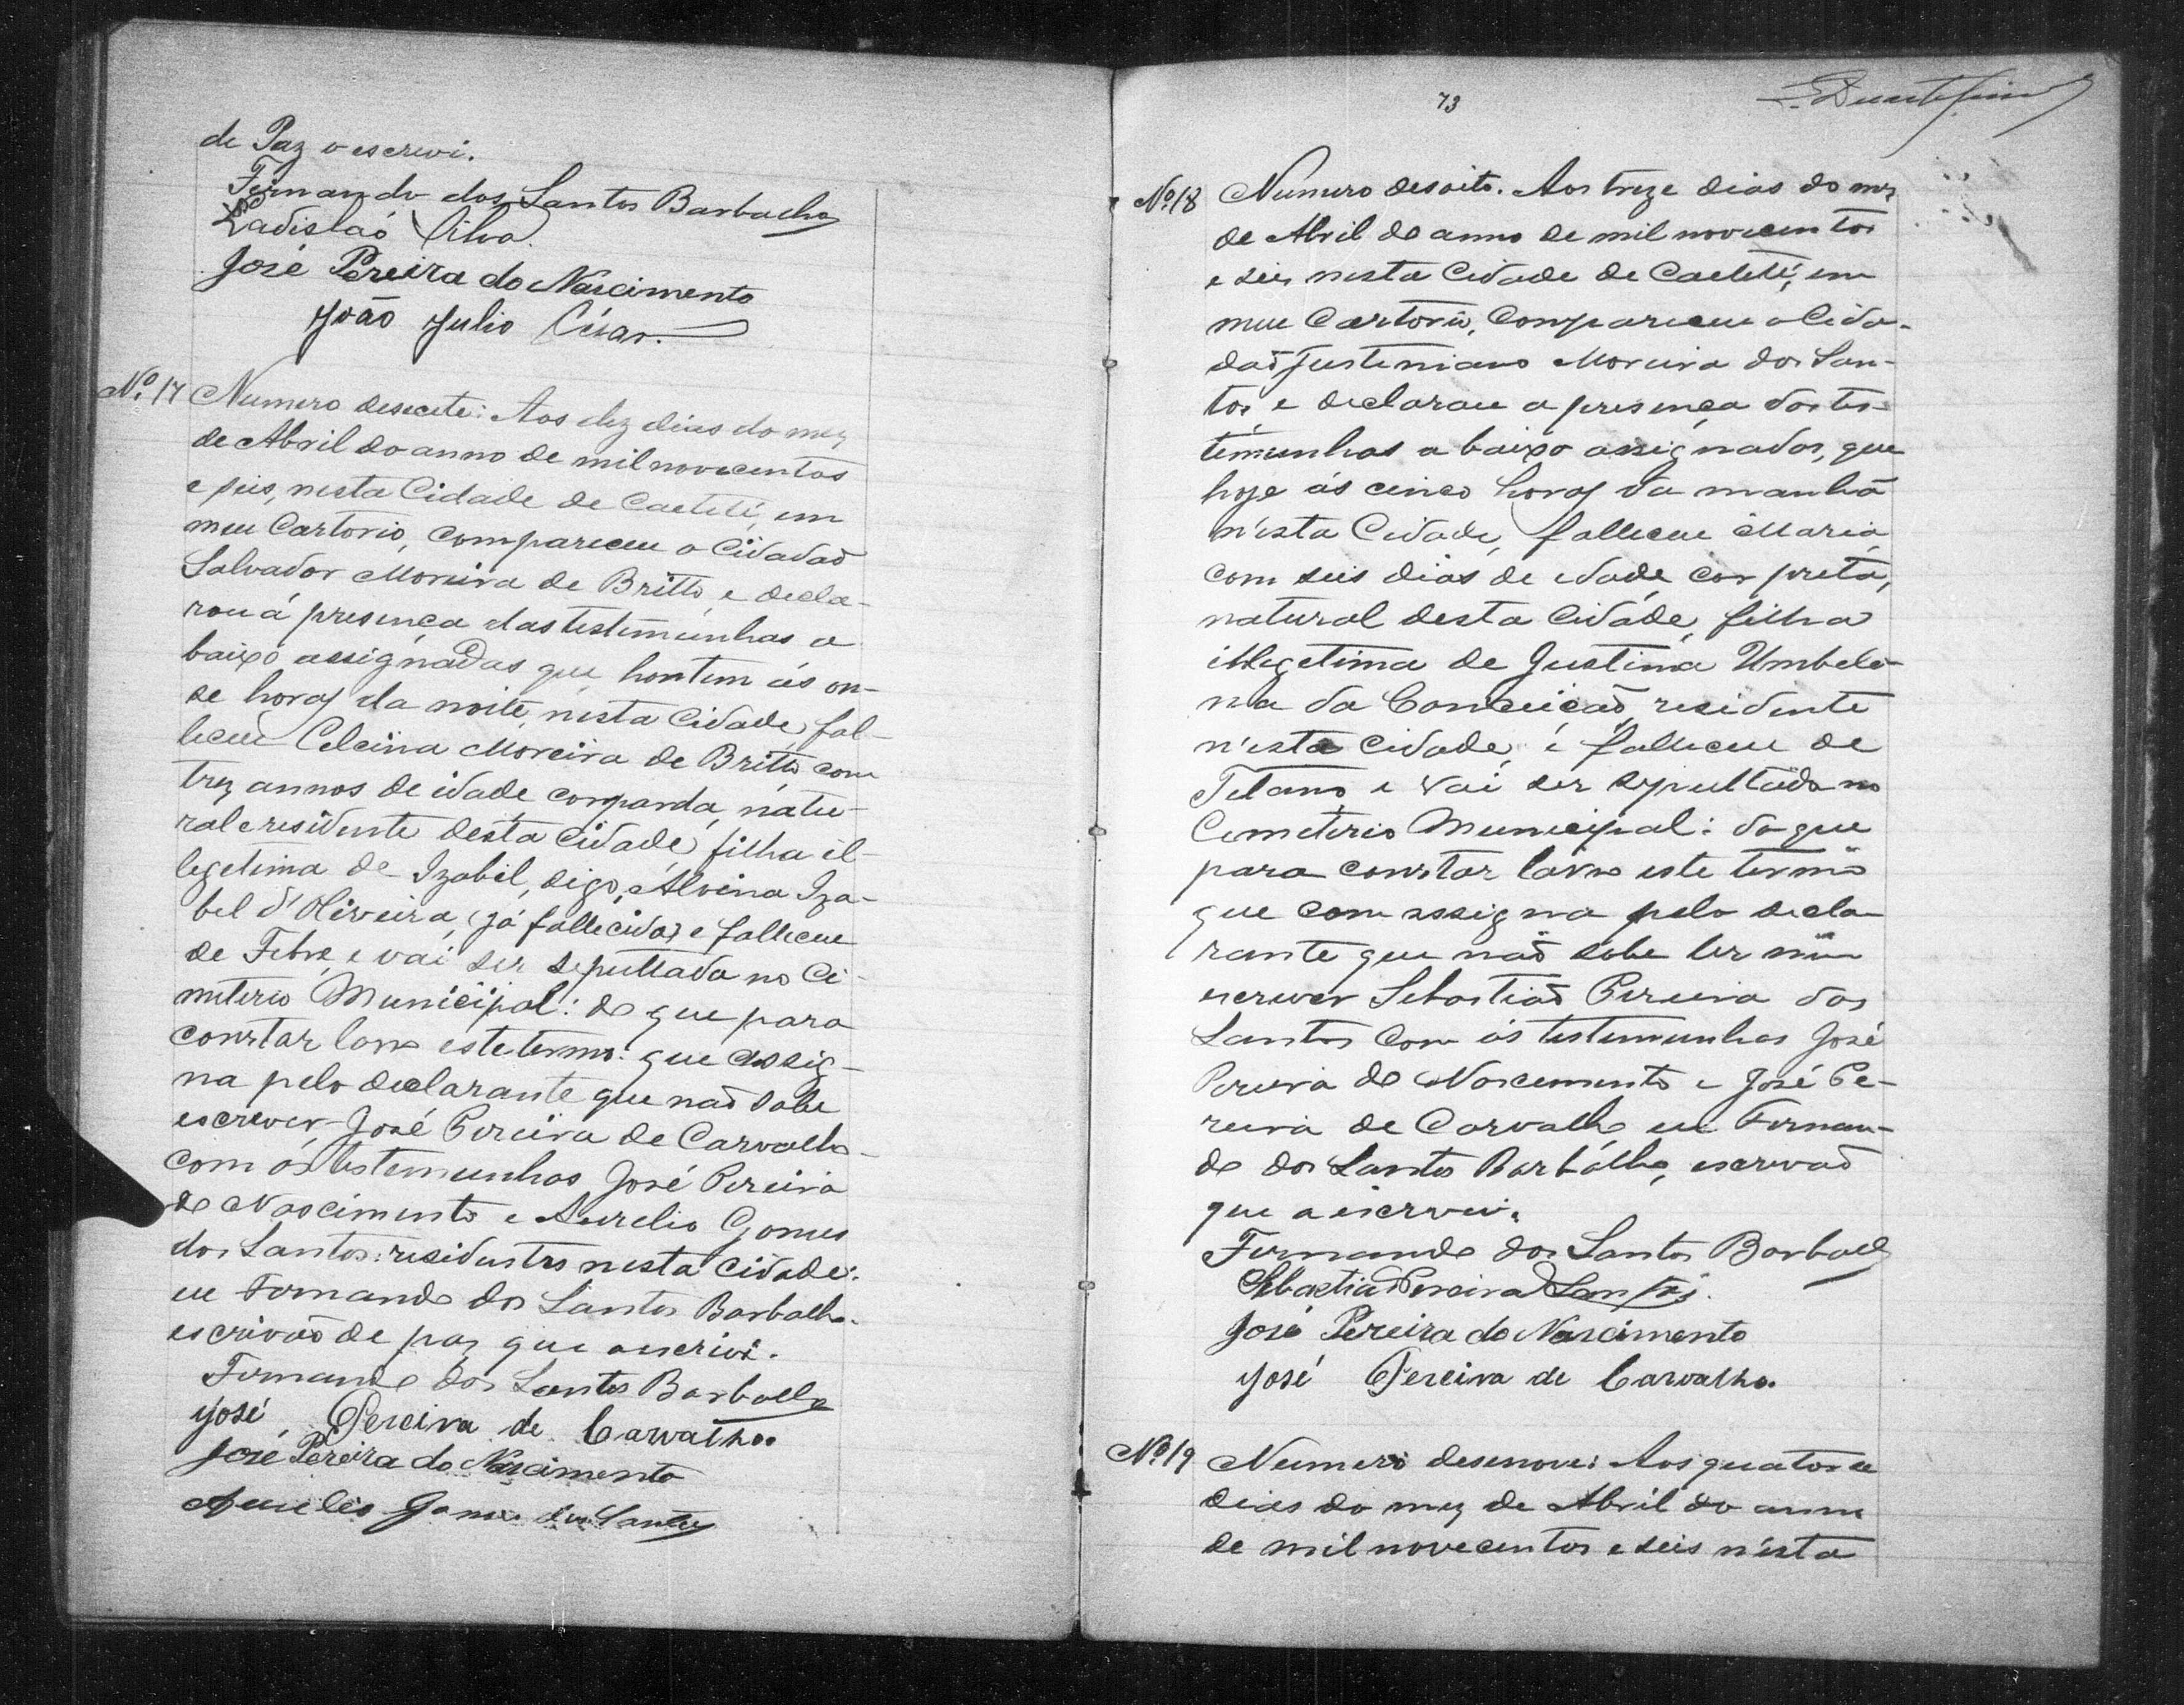 de Paz o escrevi.
Fernando dos Santos Barbalho
Ladisláo Silva.
José Pereira do Nascimento
João Julio César.
Nº 17 Numero desecete: Aos dez dias do mez
de Abril do anno de mil novecentos
e seis, nesta Cidade de Caeteté, em
meu Cartorio, compareceu o Cidadaõ
Salvador Moreira de Britto, e decla-
rou á presença das testimunhas a
baixo assignadas que hontem ás on-
se horas da noite, nesta Cidade, fal-
leceu Celcina Moreira de Britto, com
trez annos de idade, cor parda, natu-
ral e residente desta Cidade, filha il-
legetima de Izabél, digo, Alvina Iza-
bel d'Oliveira, (já fallecida) e falleceu
de Febre, e vai ser sepultada no Ce-
miterio Municipal: do que para
constar lavro este termo: que assig-
na pelo declarante que naõ sabe
escrever José Pereira de Carvalho
com as testemunhas José Pereira
do Nascimento e Aurelio Gomes
dos Santos: residentes nesta Cidade:
eu Fernando dos Santos Barbalho
escrivaõ de paz que o escrivi.
Fernando dos Santos Barbalho
José Pereira de Carvalho.
José Pereira do Nascimento
Aurelio Gomes dos Santos
73
Nº 18 Numero desoito. Aos treze dias do mez
de Abril do anno de mil novecentos
e seis nesta Cidade de Caeteté, em
meu Cartorio, compareceu o Cida-
daõ Justiniano Moreira dos San-
tos, e declarou a presença das tes-
timunhas a baixo assignados, que
hoje ás cinco horas da manhã
n'esta Cidade, falleceu Maria,
com seis dias de idade, cor preta,
natural desta Cidade, filha
illegetima de Justina Umbele-
na da Conceiçaõ, residente
n'esta Cidade, é falleceu de
Tetano e vai ser sepultada no
Cemeterio Municipal: do que
para constar lavro este termo
que com assigna pelo decla-
rante que naõ sabe ler nem
escrever Sebastiaõ Pereira dos
Santos com as testemunhas José
Pereira do Nascemento e José Pe-
reira de Carvalho eu Fernan-
do dos Santos Barbalho, escrivaõ
que o escrevi.
Fernando dos Santos Barbalho
Sebastiaõ Pereira Santos.
José Pereira do Nascimento
José Pereira de Carvalho.
Nº 19 Numero desenove: Aos quatorse
dias do mez de Abril do anno
de mil novecentos e seis n'esta